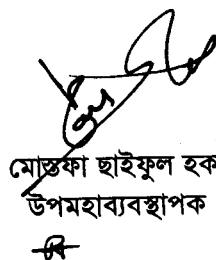 মোস্তফা ছাইফুল হক
উপমহাব্যবস্থাপক